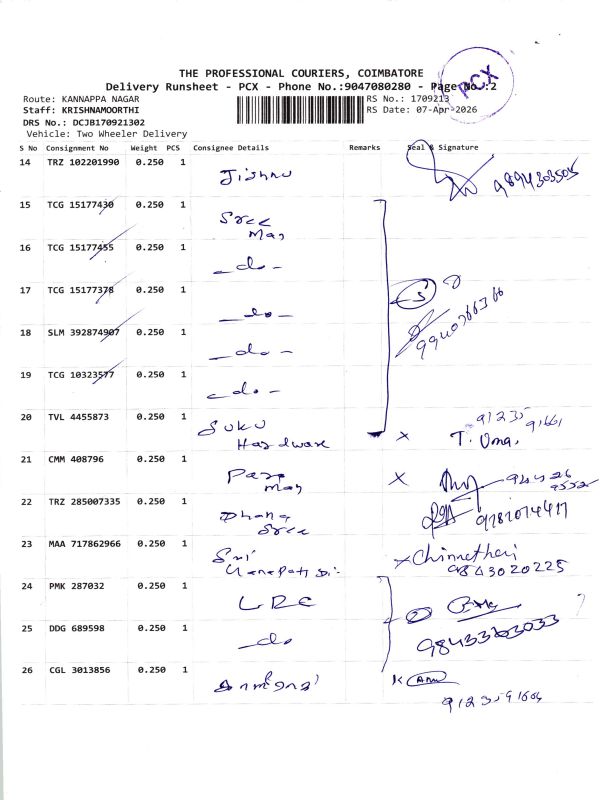 THE PROFESSIONAL COURIERS, COIMBATORE
Delivery Runsheet - PCX - Phone No.:9047080280 - Page No.:2
PCX
Route: KANNAPPA NAGAR
RS No.: 1709213
Staff: KRISHNAMOORTHI
RS Date: 07-Apr-2026
DRS No.: DCJB170921302
Vehicle: Two Wheeler Delivery
S No Consignment No Weight PCS Consignee Details Remarks Seal & Signature
14 TRZ 102201990 0.250 1 Jishnu 9894303505
15 TCG 15177430 0.250 1 Sree
16 TCG 15177455 0.250 1 -do-
17 TCG 15177378 0.250 1 -do- 5
18 SLM 392874907 0.250 1 -do-
19 TCG 10323577 0.250 1 -do-
20 TVL 4455873 0.250 1 Suku
Hardware T. Uma,
21 CMM 408796 0.250 1
22 TRZ 285007335 0.250 1 Dhana
Sree
23 MAA 717862966 0.250 1 Sri
9843020225
24 PMK 287032 0.250 1 LRC 2
25 DDG 689598 0.250 1 -do
26 CGL 3013856 0.250 1